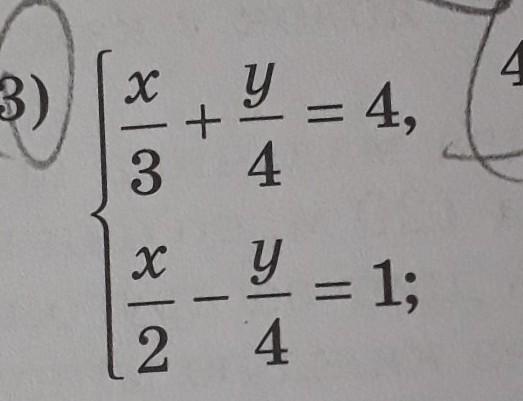 3) { x/3 + y/4 = 4,
x/2 − y/4 = 1;
4